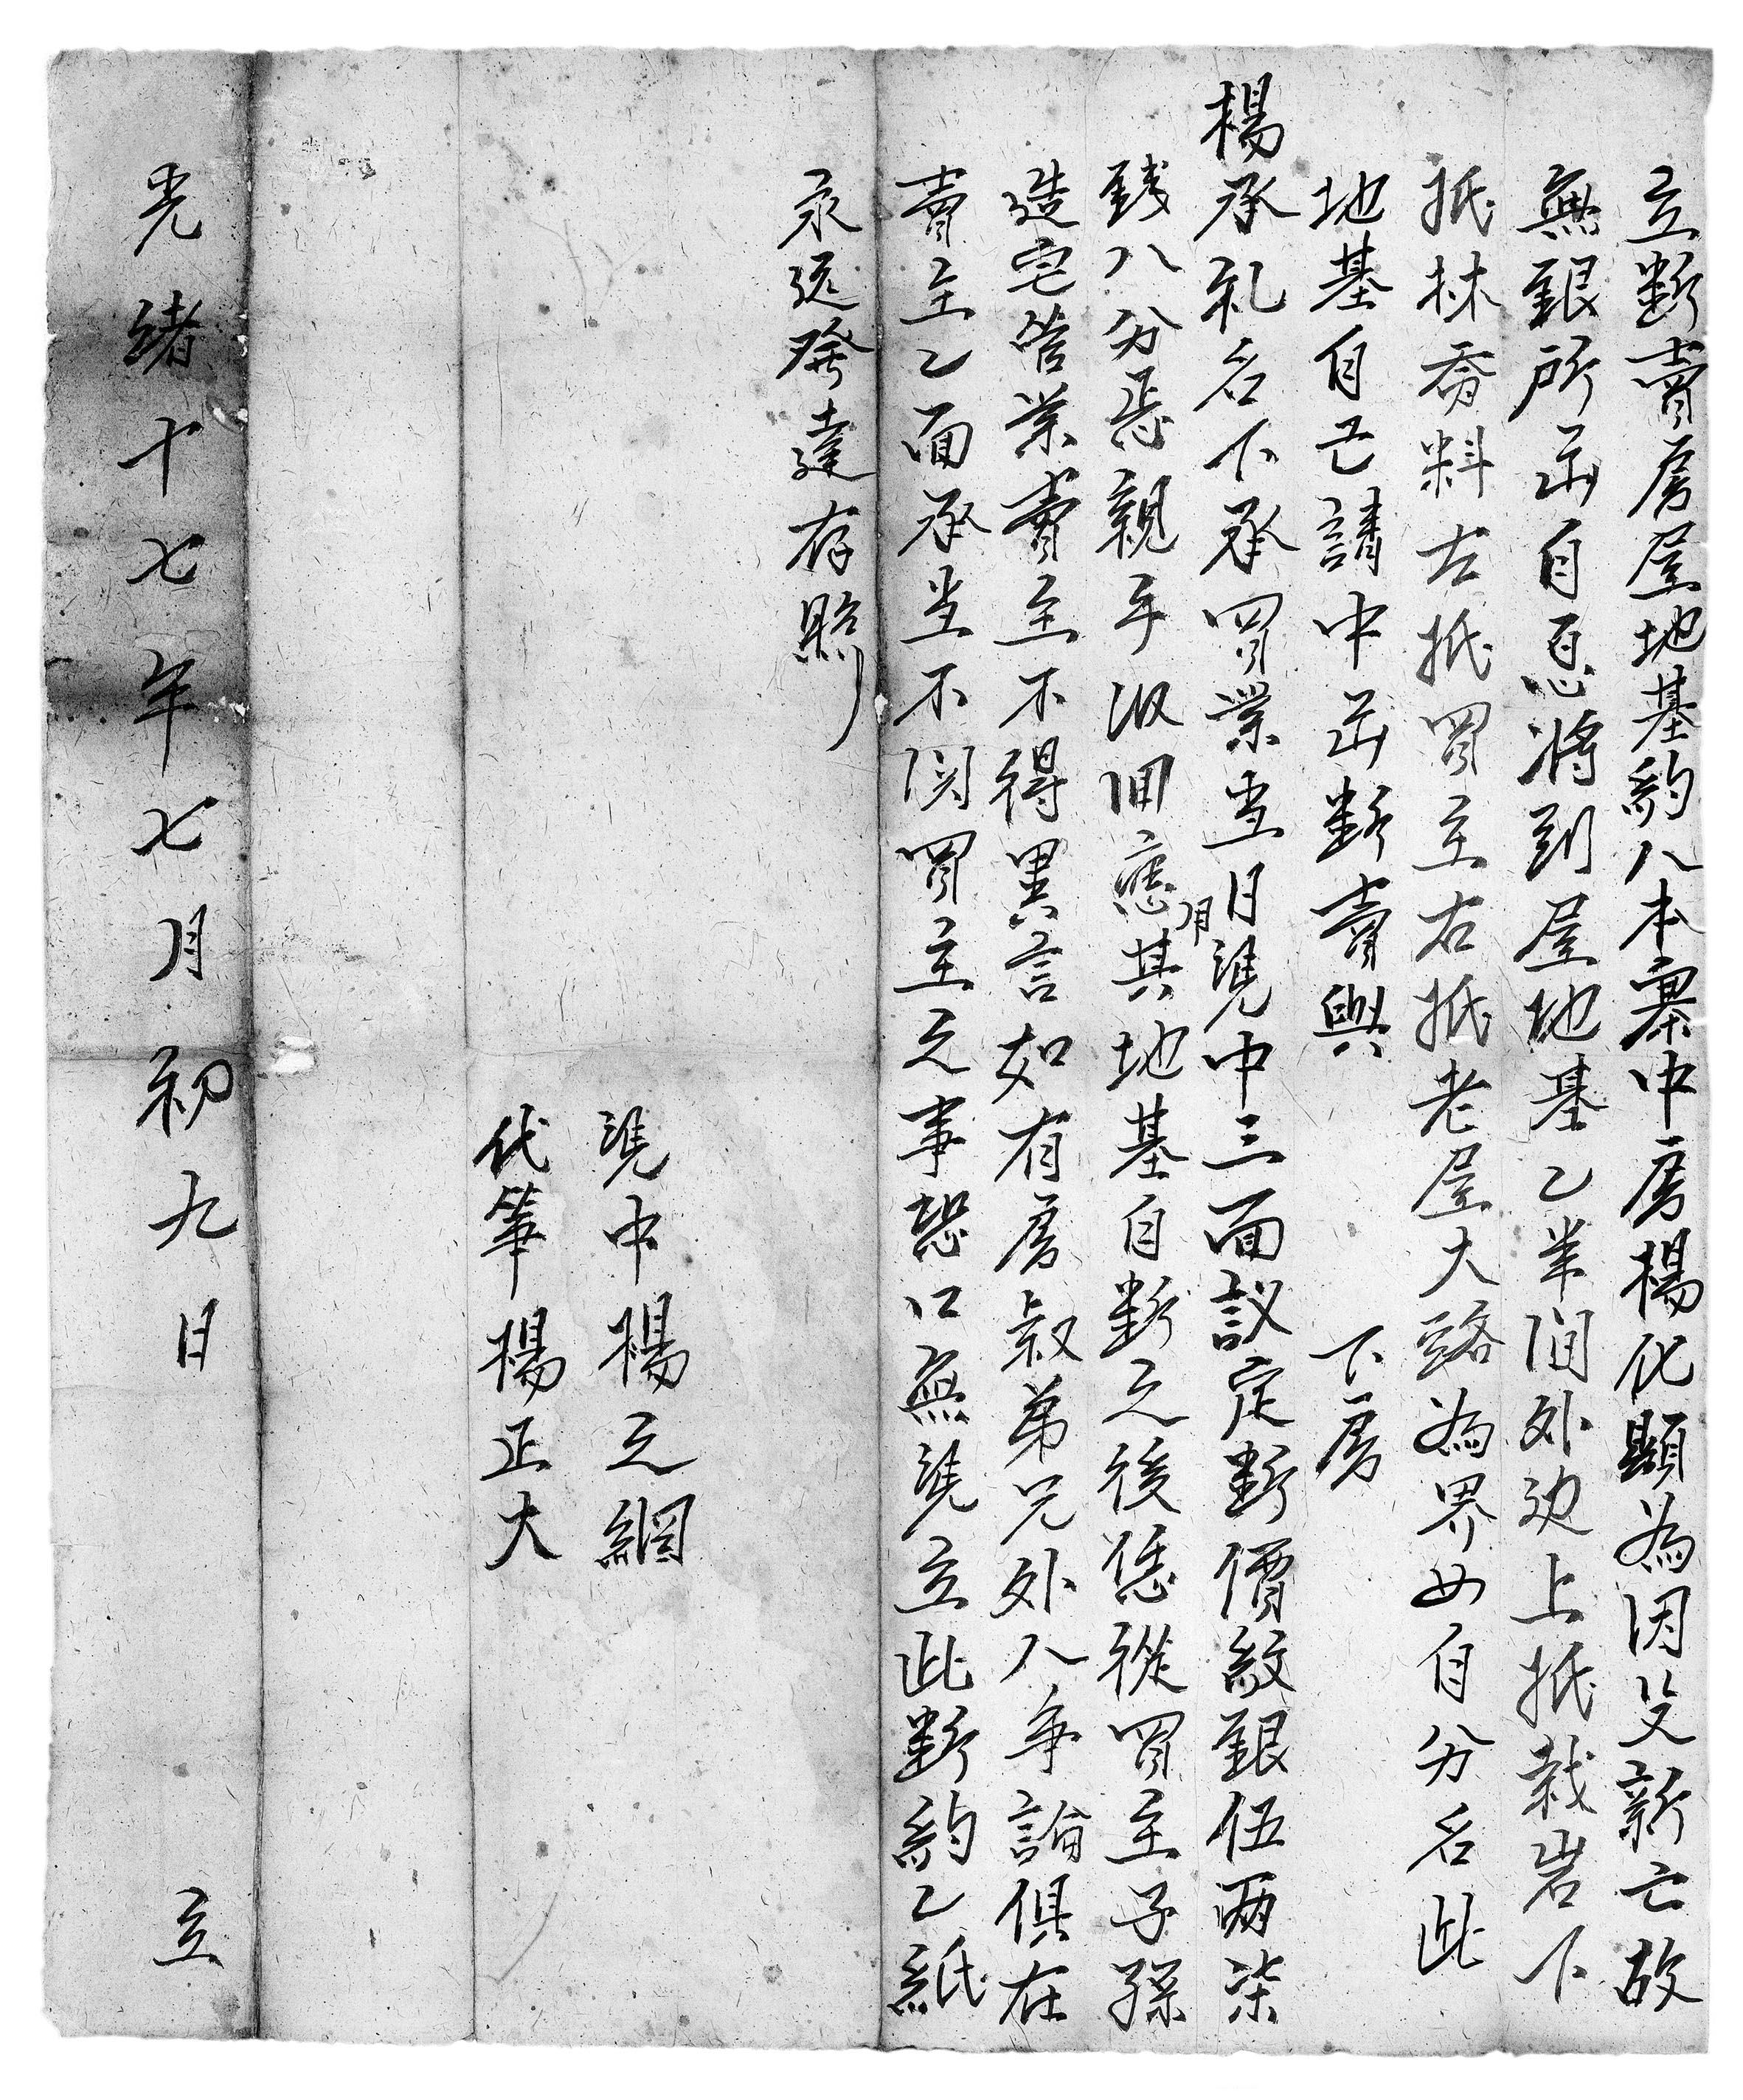 立斷賣房屋地基約人本寨中房楊化顯為因父新亡故
無銀所出自愿將到屋地基乙半间外边上抵栽岩下
抵林喬料左抵買主右抵老屋大路為界四自分名此
地基自己請中出斷賣與 下房
楊承礼名下承買業當日凴中三面議定斷價紋銀伍両柒
錢八分是親手收回應用其地基自斷之後恁從買主子孫
造宅管業賣主不得異言如有房叔弟兄外人争論俱在
賣主乙面承当不関買主之事恐口無凴立此斷約乙紙
永遠發達存照
凴中楊之網
代筆楊正大
光緒十七年七月初九日 立